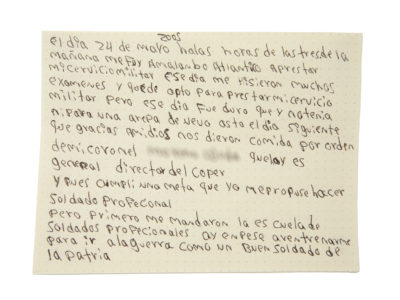 2005
El dia 24 de mayo halas horas de las tres de la
mañana me fuy Amalambo Atlantico aprestar
miservicio militar ese dia me hisieron muchos
examenes y quede apto para prestar miservicio
militar pero ese dia fue duro que y no tenia
ni para una arepa de uevo asta el dia siguiente
que gracias amidios nos dieron comida por orden
de mi coronel que oy es
general director del coper
y pues cumpli una meta que yo me propuse hacer
soldado profecional
pero primero me mandaron la es cuela de
soldados profecionales ay enpese a ventrenarme
para ir ala guerra como un buen soldado de
la patria